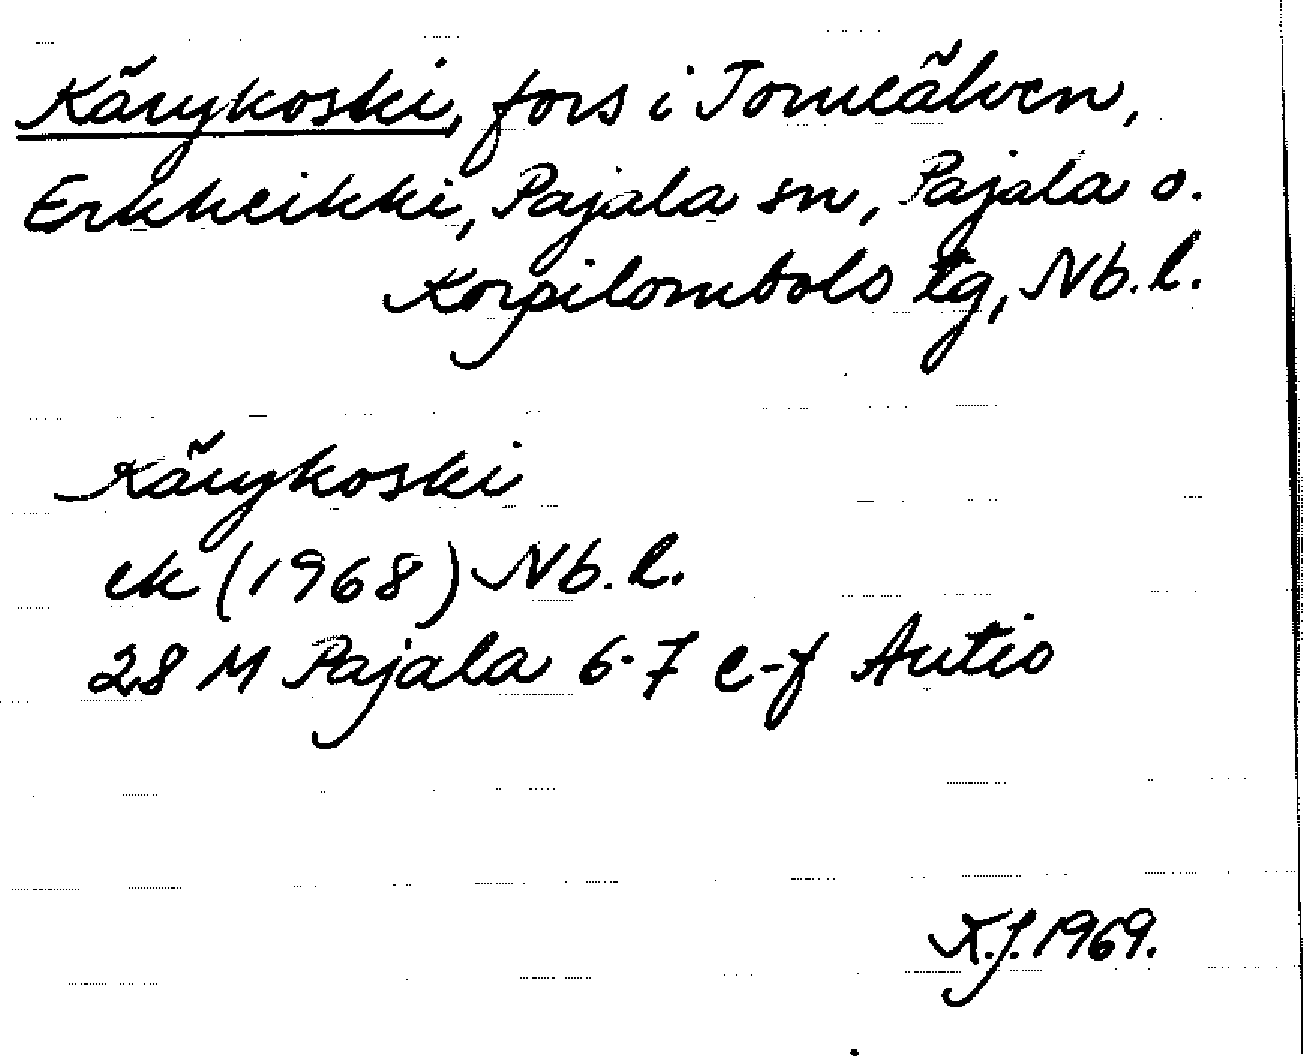 Kärykoski, fors i Torneälven,
Erkheikki, Pajala sn, Pajala o.
Korpilombolo tg, Nb. l.
Kärykoski
ek (1968) Nb. l.
28 M Pajala 6-7 e-f Autio
K.J. 1969.